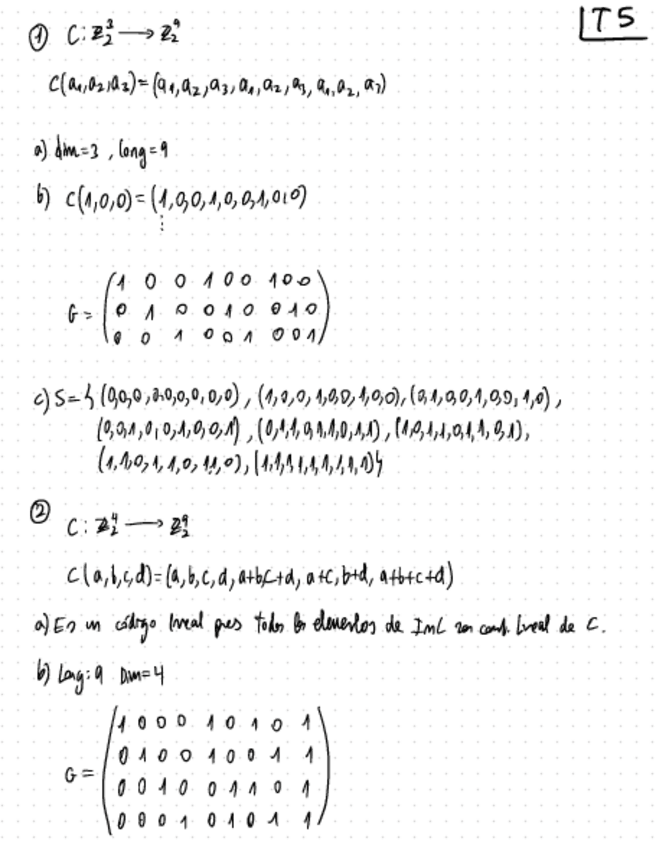 T5
① C: ℤ₂³ ⟶ ℤ₂⁹
C(a₁,a₂,a₃)=(a₁,a₂,a₃,a₁,a₂,a₃,a₁,a₂,a₃)
a) dim=3 , long=9
b) C(1,0,0)=(1,0,0,1,0,0,1,0,0)
⋮
G = (1 0 0 1 0 0 1 0 0
0 1 0 0 1 0 0 1 0
0 0 1 0 0 1 0 0 1)
c) S={(0,0,0,0,0,0,0,0,0), (1,0,0,1,0,0,1,0,0), (0,1,0,0,1,0,0,1,0),
(0,0,1,0,0,1,0,0,1), (0,1,1,0,1,1,0,1,1), (1,0,1,1,0,1,1,0,1),
(1,1,0,1,1,0,1,1,0), (1,1,1,1,1,1,1,1,1)}
② C: ℤ₂⁴ ⟶ ℤ₂⁹
C(a,b,c,d)=(a,b,c,d,a+b,c+d,a+c,b+d,a+b+c+d)
a) Es un código lineal pues todos los elementos de ImC son comb. lineal de C.
b) Long: 9 Dim=4
G = (1 0 0 0 1 0 1 0 1
0 1 0 0 1 0 0 1 1
0 0 1 0 0 1 1 0 1
0 0 0 1 0 1 0 1 1)